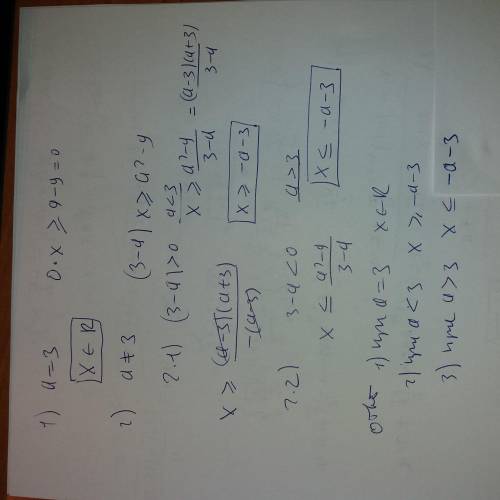 1) a = 3 0·x ≥ 9-9=0
x ∈ R
2) a ≠ 3 (3-a)x ≥ a²-9
2.1) (3-a)>0 a<3
x ≥ a²-9 / 3-a = (a-3)(a+3) / 3-a
x ≥ (a-3)(a+3) / -(a-3) x ≥ -a-3
2.2) 3-a<0 a>3
x ≤ a²-9 / 3-a x ≤ -a-3
Ответ 1) при a=3 x∈R
2) при a<3 x ≥ -a-3
3) при a>3 x ≤ -a-3